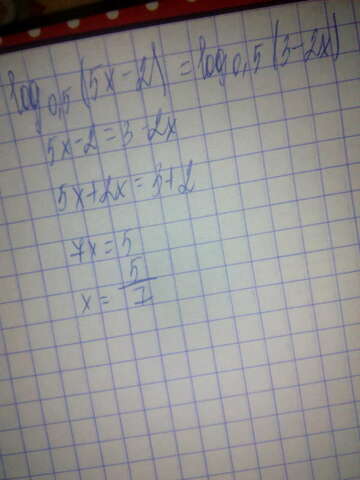 log₀,₅(5x-2)=log₀,₅(3-2x)
5x-2=3-2x
5x+2x=3+2
7x=5
x=5/7